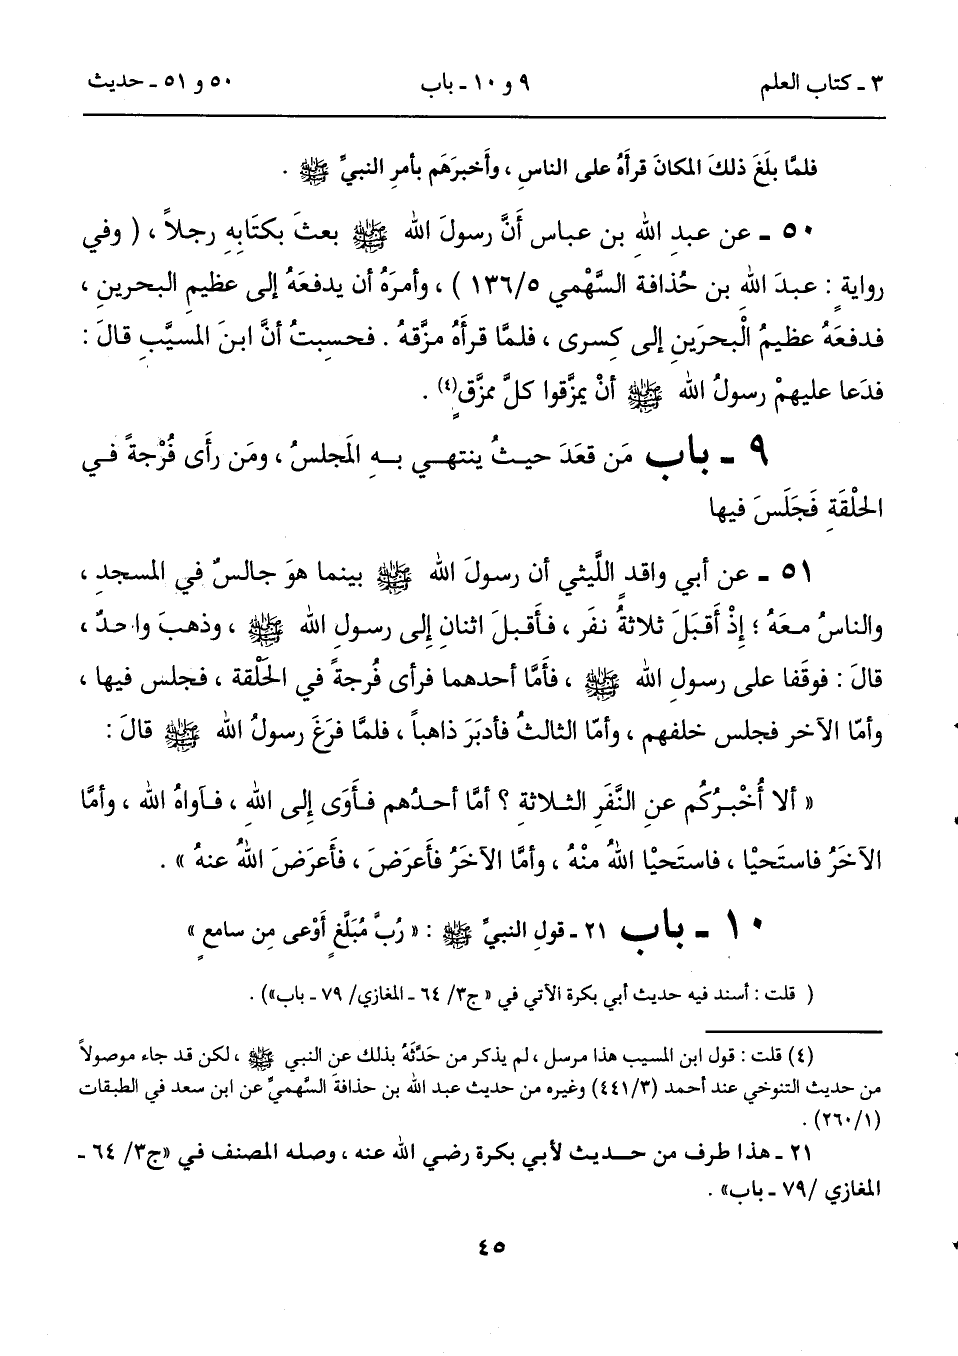 ٣ ـ كتاب العلم ٩ و ١٠ ـ باب ٥٠ و ٥١ ـ حديث
فلمَّا بلَغَ ذلكَ المكانَ قرأَهُ على الناسِ ، وأَخبرَهَم بأمرِ النبيِّ ﷺ .
٥٠ ـ عن عبدِ اللهِ بن عباس أَنَّ رسولَ الله ﷺ بعثَ بكتَابِهِ رجلاً ، ( وفي
روايةٍ : عبدَ اللهِ بن حُذافة السَّهْمي ١٣٦/٥ ) ، وأمرَهُ أن يدفعَهُ إلى عظيمِ البحرينِ ،
فدفعَهُ عظيمُ الْبحرَينِ إلى كِسرى ، فلمَّا قرأَهُ مزَّقهُ . فحسِبتُ أنَّ ابنَ المسيَّبِ قالَ :
فدَعا عليهمْ رسولُ الله ﷺ أنْ يمزَّقوا كلَّ ممزَّقٍ(٤) .
٩ ـ باب مَن قعَدَ حيثُ ينتهـي بـهِ المَجلسُ ، ومَن رأَى فُرْجةً في
الحَلْقَةِ فَجَلَسَ فيها
٥١ ـ عن أبي واقدٍ اللَّيثي أن رسولَ الله ﷺ بينما هوَ جالسٌ في المسجدِ ،
والناسُ معَهُ ؛ إذْ أَقبَلَ ثلاثةُ نفَر ، فأَقبلَ اثنانِ إلى رسولِ الله ﷺ ، وذهبَ واحدٌ ،
قالَ : فوقَفا على رسولِ الله ﷺ ، فأَمَّا أحدهما فرأى فُرجةً في الحَلْقة ، فجلس فيها ،
وأمّا الآخر فجلس خلفهم ، وأمّا الثالثُ فأدبَرَ ذاهباً ، فلمَّا فرَغَ رسولُ الله ﷺ قالَ :
« ألا أُخْبرُكُم عنِ النَّفَرِ الثلاثةِ ؟ أمَّا أحدُهم فأَوَى إلى اللهِ ، فآواهُ الله ، وأمَّا
الآخَرُ فاستَحيْا ، فاستَحيْا اللهُ منْهُ ، وأمَّا الآخَرُ فأَعرَضَ ، فأَعرَضَ اللهُ عنهُ » .
١٠ ـ باب ٢١ ـ قولِ النبيِّ ﷺ : « رُبَّ مُبَلَّغٍ أَوْعى مِن سامعٍ »
( قلت : أسند فيه حديث أبي بكرة الآتي في « ج٣/ ٦٤ ـ المغازي/ ٧٩ ـ باب») .
(٤) قلت : قول ابن المسيب هذا مرسل ، لم يذكر من حَدَّثَهُ بذلك عن النبي ﷺ ، لكن قد جاء موصولاً
من حديث التنوخي عند أحمد (٤٤١/٣) وغيره من حديث عبد الله بن حذافة السَّهميِّ عن ابن سعد في الطبقات
(٢٦٠/١) .
٢١ ـ هذا طرف من حديث لأبي بكرة رضي الله عنه ، وصله المصنف في «ج٣/ ٦٤ ـ
المغازي /٧٩ ـ باب» .
٤٥